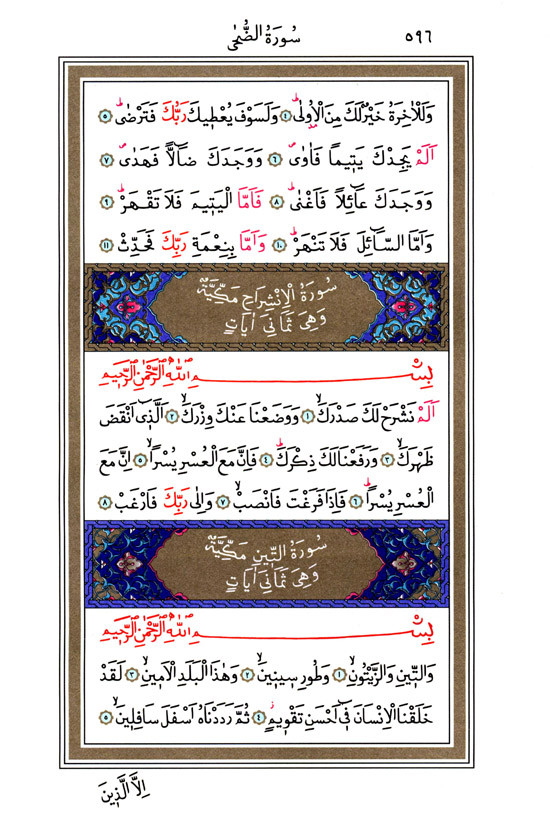 سُورَةُ الضُّحٰى ٥٩٦
وَلَلْاٰخِرَةُ خَيْرٌ لَكَ مِنَ الْاُو۫لٰىۜ ﴿٤﴾ وَلَسَوْفَ يُعْط۪يكَ رَبُّكَ فَتَرْضٰىۜ ﴿٥﴾
اَلَمْ يَجِدْكَ يَت۪يماً فَاٰوٰىۖ ﴿٦﴾ وَوَجَدَكَ ضَٓالاًّ فَهَدٰىۖ ﴿٧﴾
وَوَجَدَكَ عَٓائِلاً فَاَغْنٰىۜ ﴿٨﴾ فَاَمَّا الْيَت۪يمَ فَلَا تَقْهَرْۜ ﴿٩﴾
وَاَمَّا السَّٓائِلَ فَلَا تَنْهَرْۜ ﴿١٠﴾ وَاَمَّا بِنِعْمَةِ رَبِّكَ فَحَدِّثْ ﴿١١﴾
سُورَةُ الْاِنْشِرَاحِ مَكِّيَّةٌ
وَهِىَ ثَمَانِى اٰيَاتٍ
بِسْمِ اللّٰهِ الرَّحْمٰنِ الرَّح۪يمِ
اَلَمْ نَشْرَحْ لَكَ صَدْرَكَۙ ﴿١﴾ وَوَضَعْنَا عَنْكَ وِزْرَكَۙ ﴿٢﴾ اَلَّذ۪ٓى اَنْقَضَ
ظَهْرَكَۙ ﴿٣﴾ وَرَفَعْنَا لَكَ ذِكْرَكَۜ ﴿٤﴾ فَاِنَّ مَعَ الْعُسْرِ يُسْراًۙ ﴿٥﴾ اِنَّ مَعَ
الْعُسْرِ يُسْراًۜ ﴿٦﴾ فَاِذَا فَرَغْتَ فَانْصَبْۙ ﴿٧﴾ وَاِلٰى رَبِّكَ فَارْغَبْ ﴿٨﴾
سُورَةُ التّ۪ينِ مَكِّيَّةٌ
وَهِىَ ثَمَانِى اٰيَاتٍ
بِسْمِ اللّٰهِ الرَّحْمٰنِ الرَّح۪يمِ
وَالتّ۪ينِ وَالزَّيْتُونِۙ ﴿١﴾ وَطُورِ س۪ين۪ينَۙ ﴿٢﴾ وَهٰذَا الْبَلَدِ الْاَم۪ينِۙ ﴿٣﴾ لَقَدْ
خَلَقْنَا الْاِنْسَانَ ف۪ٓى اَحْسَنِ تَقْو۪يمٍۘ ﴿٤﴾ ثُمَّ رَدَدْنَاهُ اَسْفَلَ سَافِل۪ينَۙ ﴿٥﴾
اِلَّا الَّذ۪ينَ